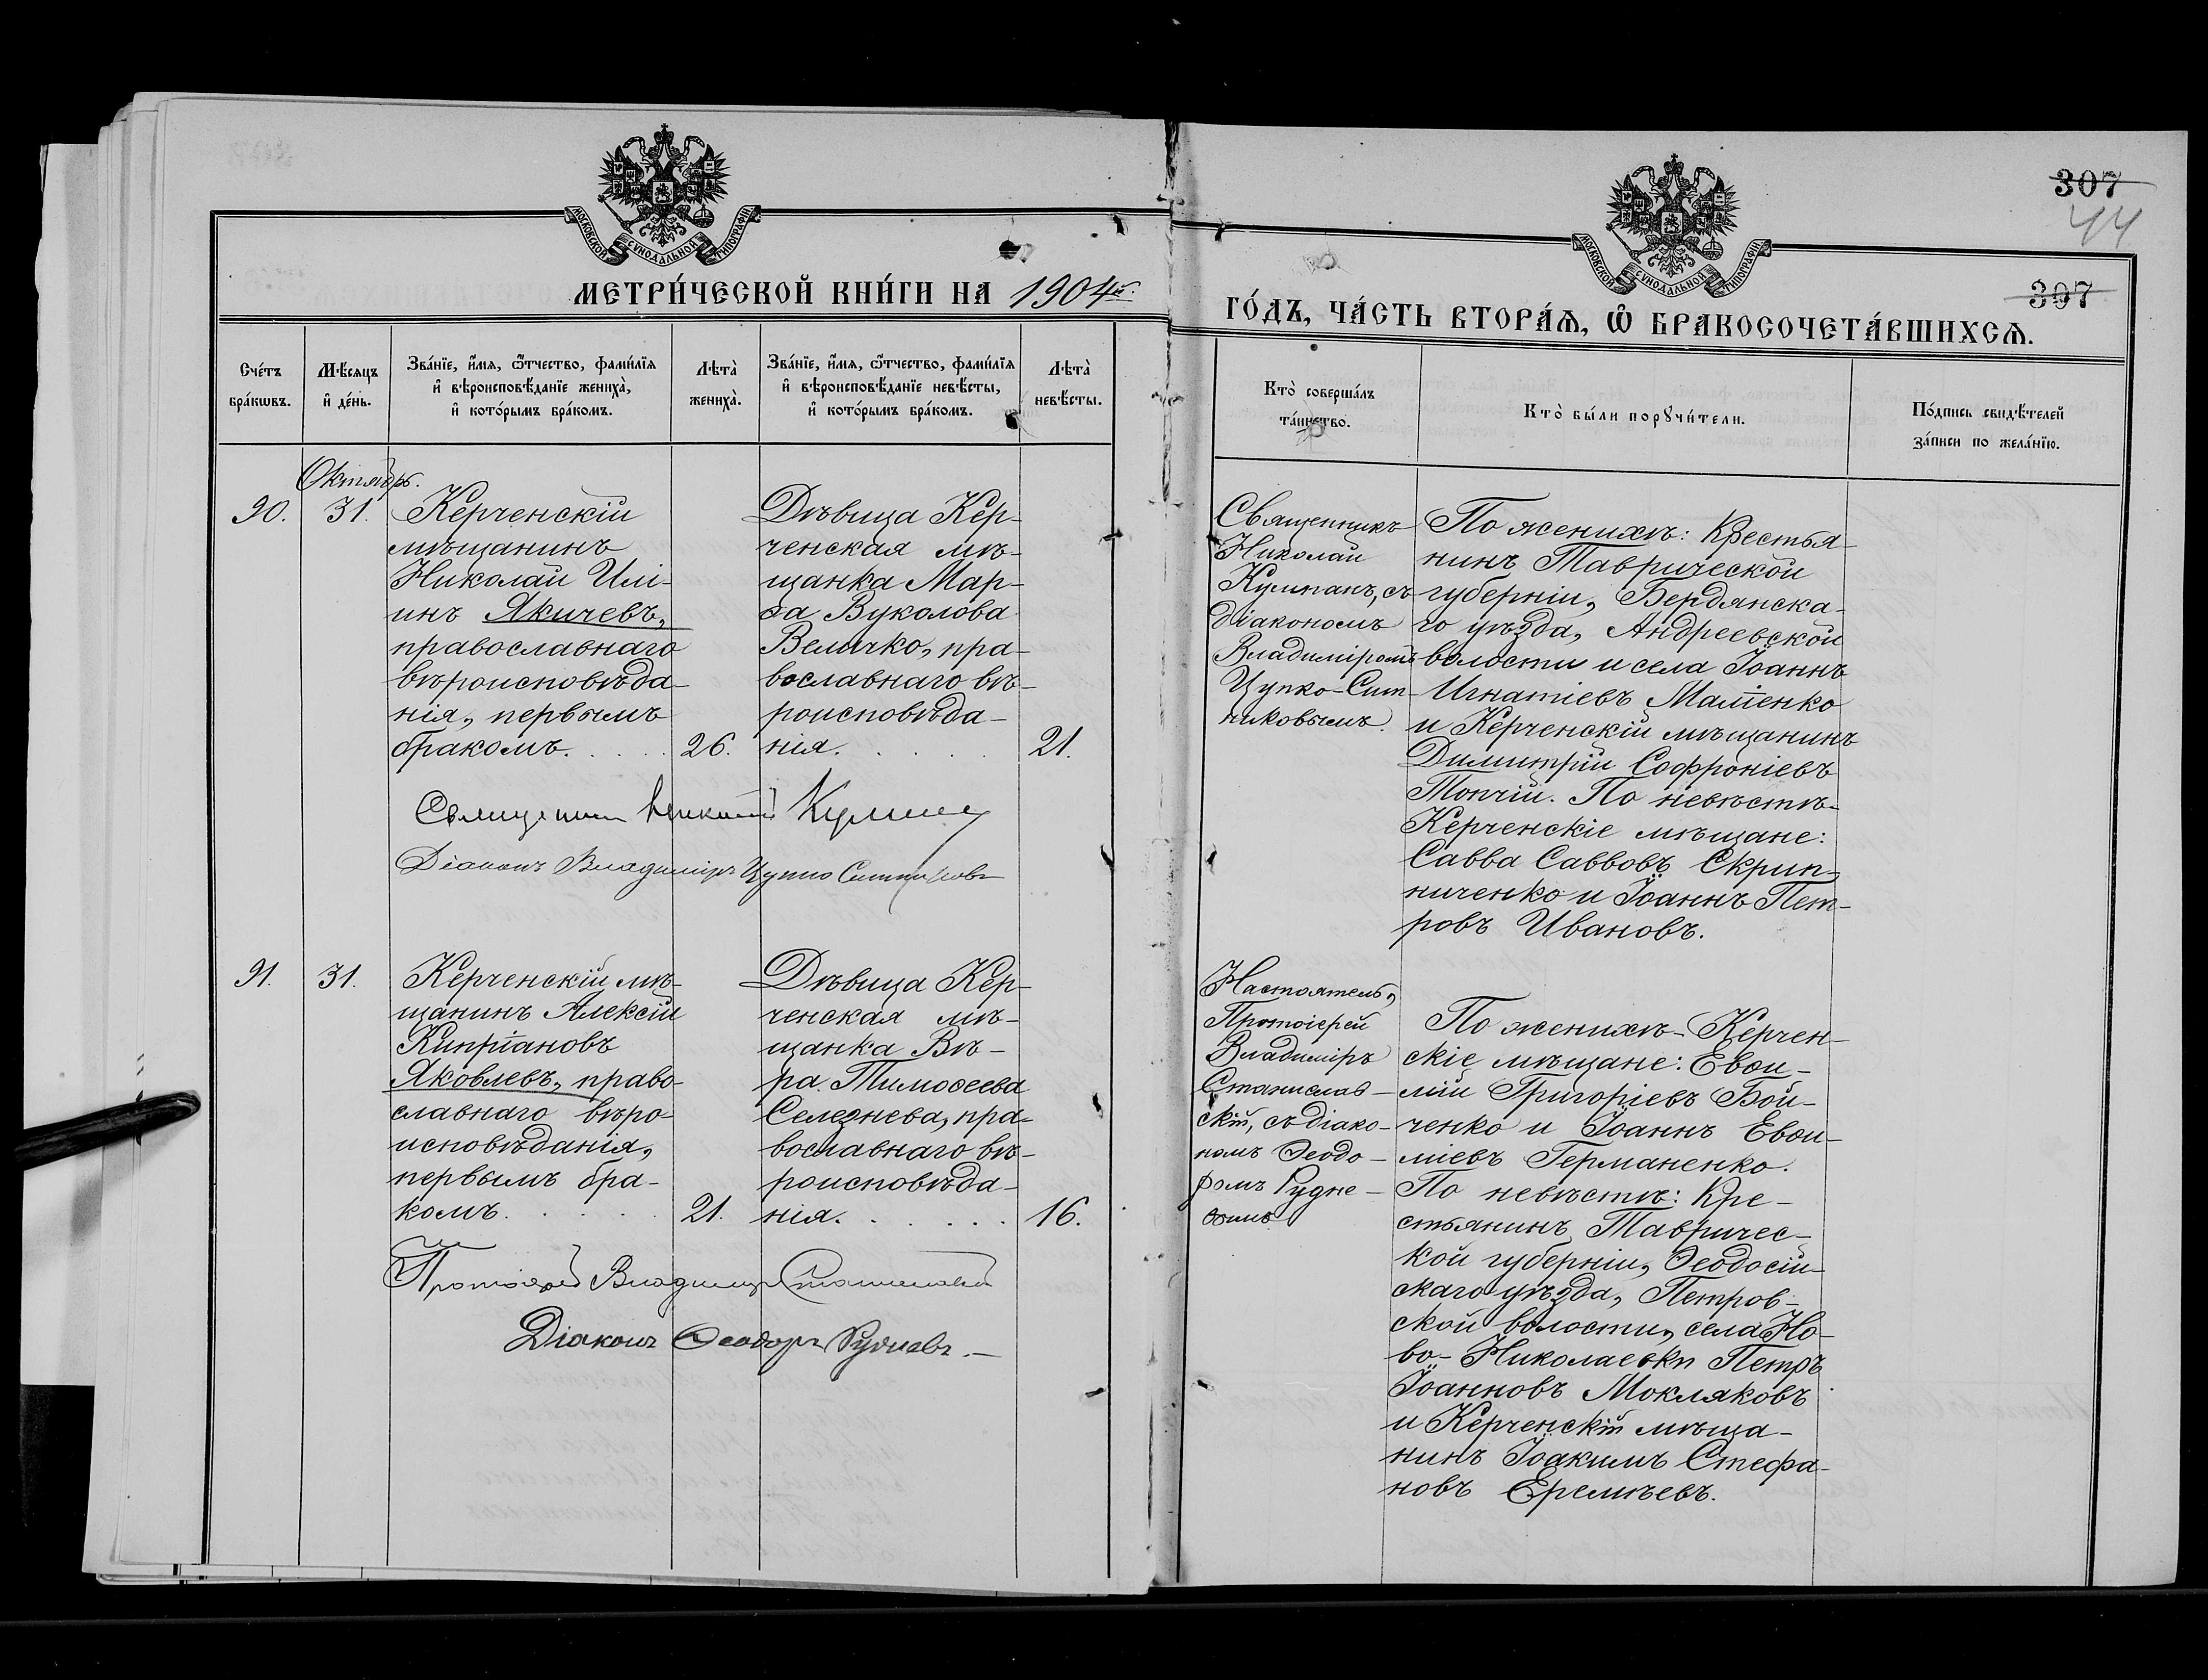 МОСКОВСКОЙ СѴНОДАЛЬНОЙ ТИПОГРАФІИ
МЕТРИ́ЧЕСКОЙ КНИ́ГИ НА 1904й.
Сче́тъ бра́кѡвъ.
Мѣ́сяцъ и҆ де́нь.
Зва́нїе, и҆́мя, ѻ҆́тчество, фами́лїя
и҆ вѣроисповѣ́данїе жениха̀,
и҆ кото́рымъ бра́комъ.
Лѣта̀ жениха̀.
Зва́нїе, и҆́мя, ѻ҆́тчество, фами́лїя
и҆ вѣроисповѣ́данїе невѣ́сты,
и҆ кото́рымъ бра́комъ.
Лѣта̀ невѣ́сты.
Октябрь.
90.
31.
Керченскій
мѣщанинъ
Николай Илі-
инъ Якичевъ,
православнаго
вѣроисповѣда-
нія, первымъ
бракомъ.
26.
Дѣвица Кер-
ченская мѣ-
щанка Мар-
ѳа Вуколова
Величко, пра-
вославнаго вѣ-
роисповѣда-
нія.
21.
Діаконъ Владиміръ Цупко Ситниковъ
91.
31.
Керченскій мѣ-
щанинъ Алексій
Кипріановъ
Яковлевъ, право-
славнаго вѣро-
исповѣданія,
первымъ бра-
комъ.
21.
Дѣвица Кер-
ченская мѣ-
щанка Вѣ-
ра Тимоѳеева
Селезнева, пра-
вославнаго вѣ-
роисповѣда-
нія.
16.
Протоіерей Владиміръ Станиславскій
Діаконъ Ѳеодоръ Рудневъ.
307
44
МОСКОВСКОЙ СѴНОДАЛЬНОЙ ТИПОГРАФІИ
307
ГО́ДЪ, ЧА́СТЬ ВТОРА́Ѧ, Ѽ БРАКОСОЧЕТА́ВШИХСѦ.
Кто̀ соверша́лъ
та́инство.
Кто̀ бы́ли порꙋчи́тели.
По́дпись свидѣ́телей
за́писи по жела́нїю.
Священникъ
Николай
Кулипанъ, съ
діакономъ
Владиміромъ
Цупко-Сит-
никовымъ.
По женихѣ: Крестья-
нинъ Таврической
губерніи, Бердянска-
го уѣзда, Андреевской
волости и села Іоаннъ
Игнатіевъ Маліенко
и Керченскій мѣщанинъ
Димитрій Софроніевъ
Топчій. По невѣстѣ-
Керченскіе мѣщане:
Савва Саввовъ Скрип-
ниченко и Іоаннъ Пет-
ровъ Ивановъ.
Настоятель,
Протоіерей
Владиміръ
Станислав-
скій, съ діако-
номъ Ѳеодо-
ромъ Рудне-
вымъ
По женихѣ-Керчен-
скіе мѣщане: Евѳи-
мій Григоріевъ Бой-
ченко и Іоаннъ Евѳи-
міевъ Германенко.
По невѣстѣ: Кре-
стьянинъ Тавричес-
кой губерніи, Ѳеодосій-
скаго уѣзда, Петров-
ской волости, села Но-
во-Николаевки Петръ
Іоанновъ Мокляковъ
и Керченскій мѣща-
нинъ Іоакимъ Стефа-
новъ Еремѣевъ.